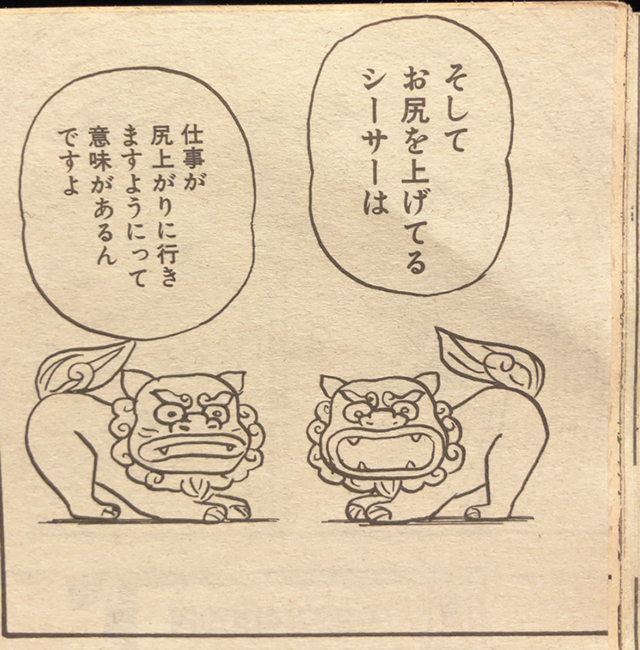 そして
お尻を上げてる
シーサーは
仕事が
尻上がりに行き
ますようにって
意味があるん
ですよ